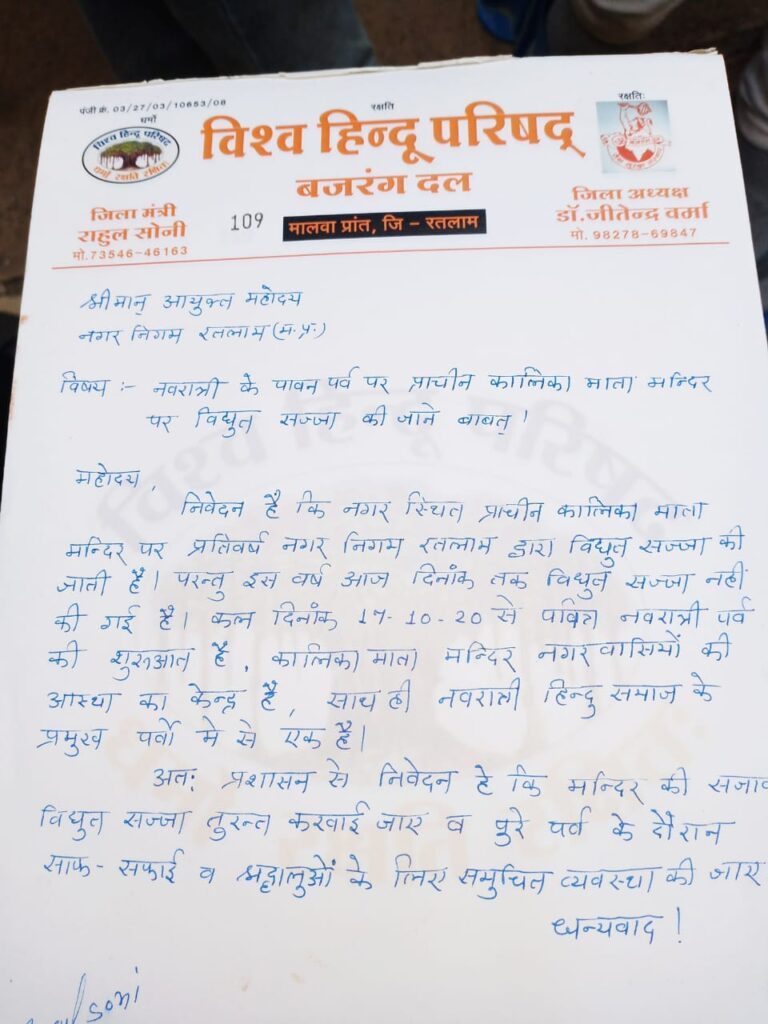 पंजी क्रं. 03/27/03/10653/08
धर्मो
रक्षति
रक्षतिः
विश्व हिन्दू परिषद
धर्मो रक्षति रक्षितः
विश्व हिन्दू परिषद्
बजरंग दल
जिला मंत्री
राहुल सोनी
मो.73546-46163
109
मालवा प्रांत, जि – रतलाम
जिला अध्यक्ष
डॉ.जीतेन्द्र वर्मा
मो. 98278-69847
श्रीमान् आयुक्त महोदय
नगर निगम रतलाम (म.प्र.)
विषय :- नवरात्री के पावन पर्व पर प्राचीन कालिका माता मन्दिर
पर विद्युत सज्जा की जाने बाबत् !
महोदय,
निवेदन है कि नगर स्थित प्राचीन कालिका माता
मन्दिर पर प्रतिवर्ष नगर निगम रतलाम द्वारा विद्युत सज्जा की
जाती है। परन्तु इस वर्ष आज दिनांक तक विद्युत सज्जा नहीं
की गई है। कल दिनांक 17-10-20 से पवित्र नवरात्री पर्व
की शुरुआत है, कालिका माता मन्दिर नगर वासियों की
आस्था का केन्द्र है, साथ ही नवरात्री हिन्दु समाज के
प्रमुख पर्वो मे से एक है।
अतः प्रशासन से निवेदन हे कि मन्दिर की
विद्युत सज्जा तुरन्त करवाई जाए व पुरे पर्व के दौरान
साफ-सफाई व श्रद्धालुओं के लिए समुचित व्यवस्था की जाए
धन्यवाद !
soni